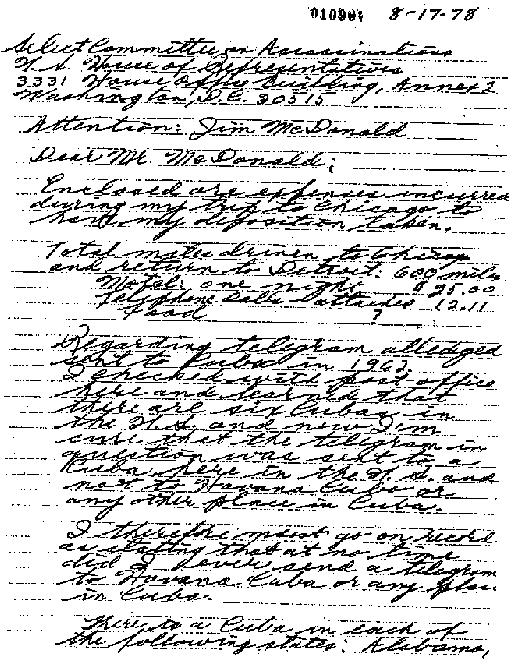 010991 8-17-78
Select Committee on Assassinations
U.S. House of Representatives
3331 House Office Building, Annex 2
Washington, D.C. 20515
Attention: Jim McDonald
Dear Mr. McDonald;
Enclosed are expenses incurred
during my trip to Chicago to
have my deposition taken.
Total miles driven to Chicago
and return to Detroit: 600 miles
Motel one night $25.00
Telephone Calls 12.11
Food ?
Regarding telegram alledged
sent to Cuba in 1963
I checked with post office
here and learned that
there are six Cubas in
the U.S. and now I'm
sure that the telegram in
question was sent to a
Cuba here in the U.S. and
not to Havana Cuba or
any other place in Cuba.
I therefore must go on record
as stating that at no time
did I ever send a telegram
to Havana Cuba or any place
in Cuba.
There is a Cuba in each of
the following states: Alabama,